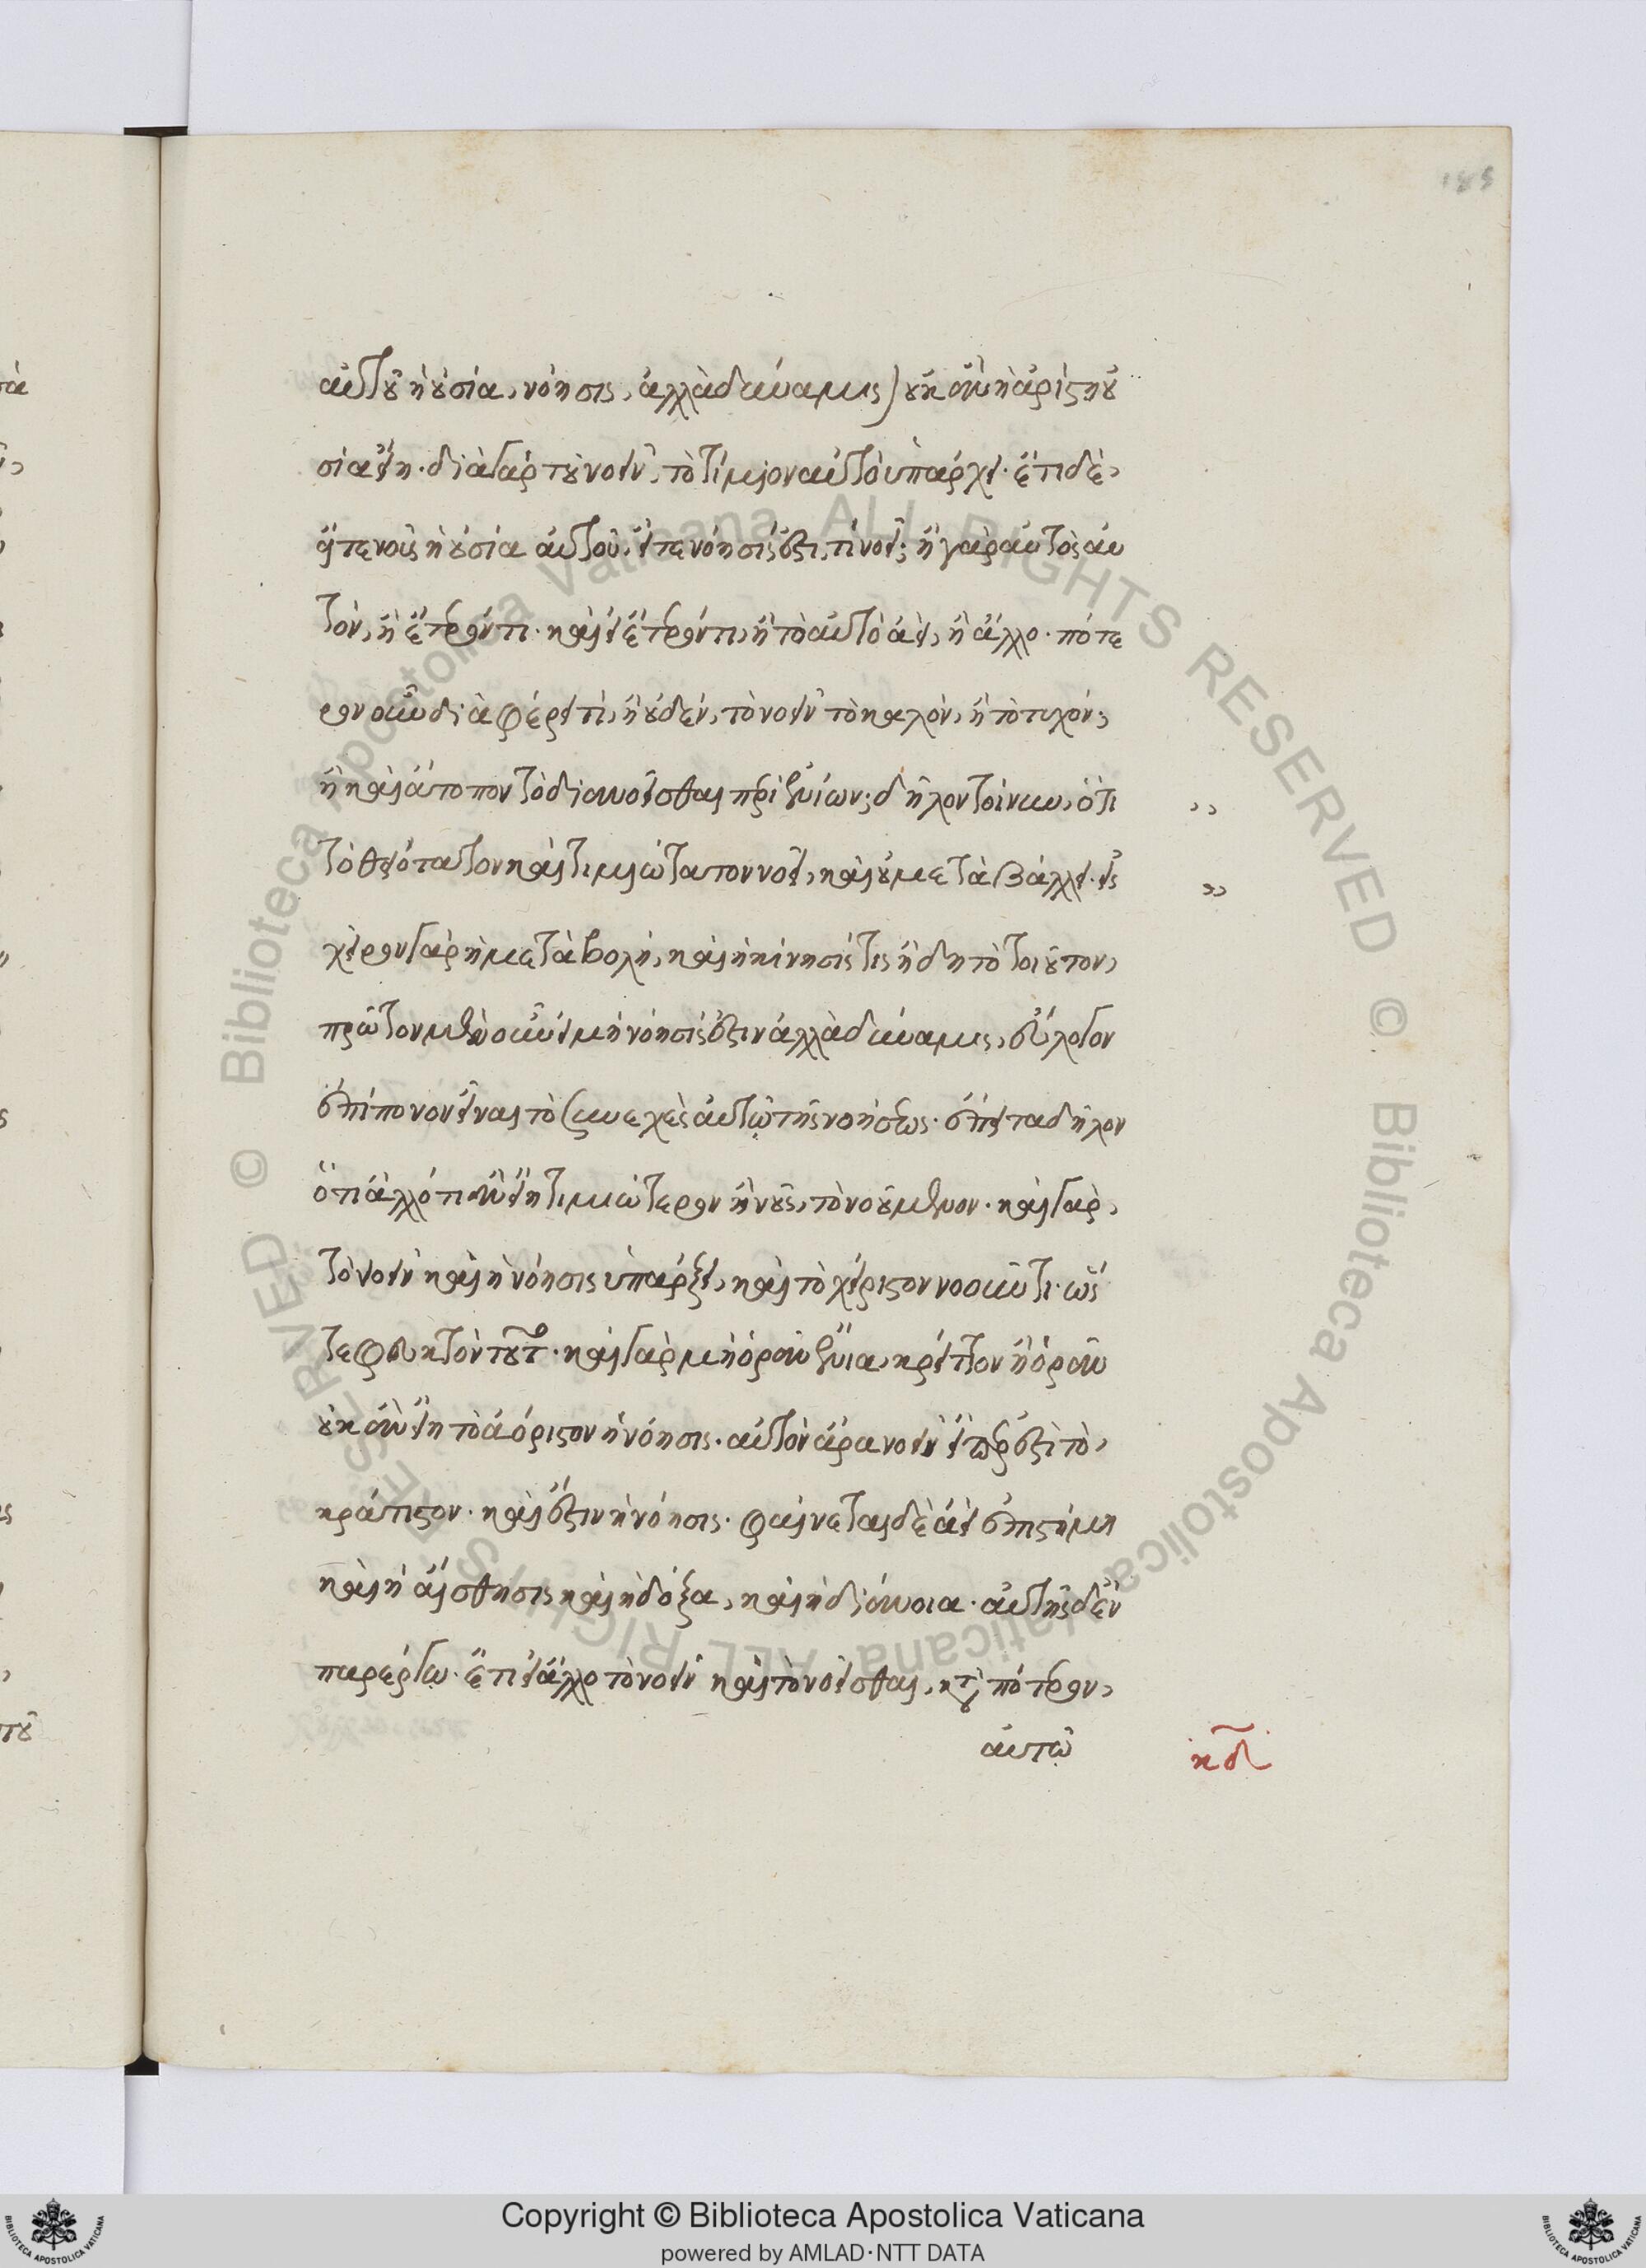 185
αὐτοῦ ἡ οὐσία, νόησις, ἀλλὰ δύναμις) οὐκ ἂν ἡ ἀρίστη οὐ
σία εἴη· διὰ γὰρ τοῦ νοεῖν, τὸ τίμιον αὐτῷ ὑπάρχει· ἔτι δὲ,
εἴτε νοῦς ἡ οὐσία αὐτοῦ, εἴτε νόησίς ἐστι, τί νοεῖ; ἢ γὰρ αὐτὸς αὑ
τόν, ἢ ἕτερόν τι· καὶ εἰ ἕτερόν τι, ἢ τὸ αὐτὸ ἀεὶ, ἢ ἄλλο· πότε
ρον οὖν διαφέρει τὶ, ἢ οὐδὲν, τὸ νοεῖν τὸ καλὸν, ἢ τὸ τυχόν;
ἢ καὶ ἄτοπον τὸ διανοεῖσθαι περὶ ἐνίων; δῆλον τοίνυν, ὅτι
τὸ θειότατον καὶ τιμιώτατον νοεῖ, καὶ οὐ μεταβάλλει· εἰς
χεῖρον γὰρ ἡ μεταβολή, καὶ ἡ κίνησίς τις ἤδη τὸ τοιοῦτον,
πρῶτον μὲν οὖν εἰ μὴ νόησίς ἐστιν ἀλλὰ δύναμις, εὔλογον
ἐπίπονον εἶναι τὸ συνεχὲς αὐτῷ τῆς νοήσεως· ἔπειτα δῆλον
ὅτι ἄλλό τι ἂν εἴη τιμιώτερον ἢ νοῦς, τὸ νοούμενον· καὶ γὰρ,
τὸ νοεῖν καὶ ἡ νόησις ὑπάρξει, καὶ τὸ χείριστον νοοῦντι· ὥς
τε φευκτὸν τοῦτο· καὶ γὰρ μὴ ὁρᾶν ἔνια, κρεῖττον ἢ ὁρᾶν
οὐκ ἂν εἴη τὸ ἀόριστον ἡ νόησις· αὑτὸν ἄρα νοεῖ εἴπερ ἐστὶ τὸ,
κράτιστον· καὶ ἔστιν ἡ νόησις· φαίνεται δὲ ἀεὶ ἐπιστήμη
καὶ ἡ αἴσθησις καὶ ἡ δόξα, καὶ ἡ διάνοια· αὑτῆς δ' ἐν
παρέργῳ· ἔτι εἰ ἄλλο τὸ νοεῖν καὶ τὸ νοεῖσθαι, κατὰ πότερον,
αὐτῷ
κδ
Copyright © Biblioteca Apostolica Vaticana
powered by AMLAD·NTT DATA